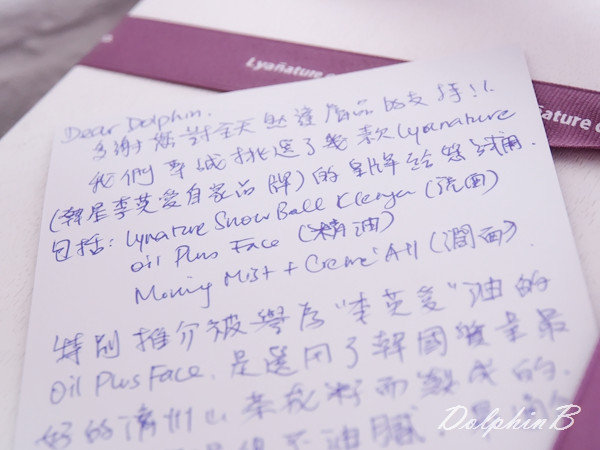 Lyañature
ature co
Dear Dolphin.
多謝您對全天然護膚品的支持!!
我們專誠挑選了幾款Lyanature
(韓星李英愛自家品牌)的皇牌給您試用.
包括: Lyanature Snow Ball Klenzer (洗面)
Oil Plus Face (精油)
Morning Mist + Creme All (潤面).
特別推介被譽為"李英愛"油的
Oil Plus Face, 是選用了韓國質量最
好的濟州山茶花籽而製成的.
不油膩.
DolphinB